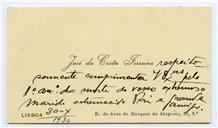 José da Costa Ferreira respeito
samente cumprimenta V. Ex.ª pelo
1º ani. da morte do vosso extremoso
Marido estremecido Pai e grande
amigo.
LISBOA 30-X
1936
R. do Arco do Marquez do Alegrete,